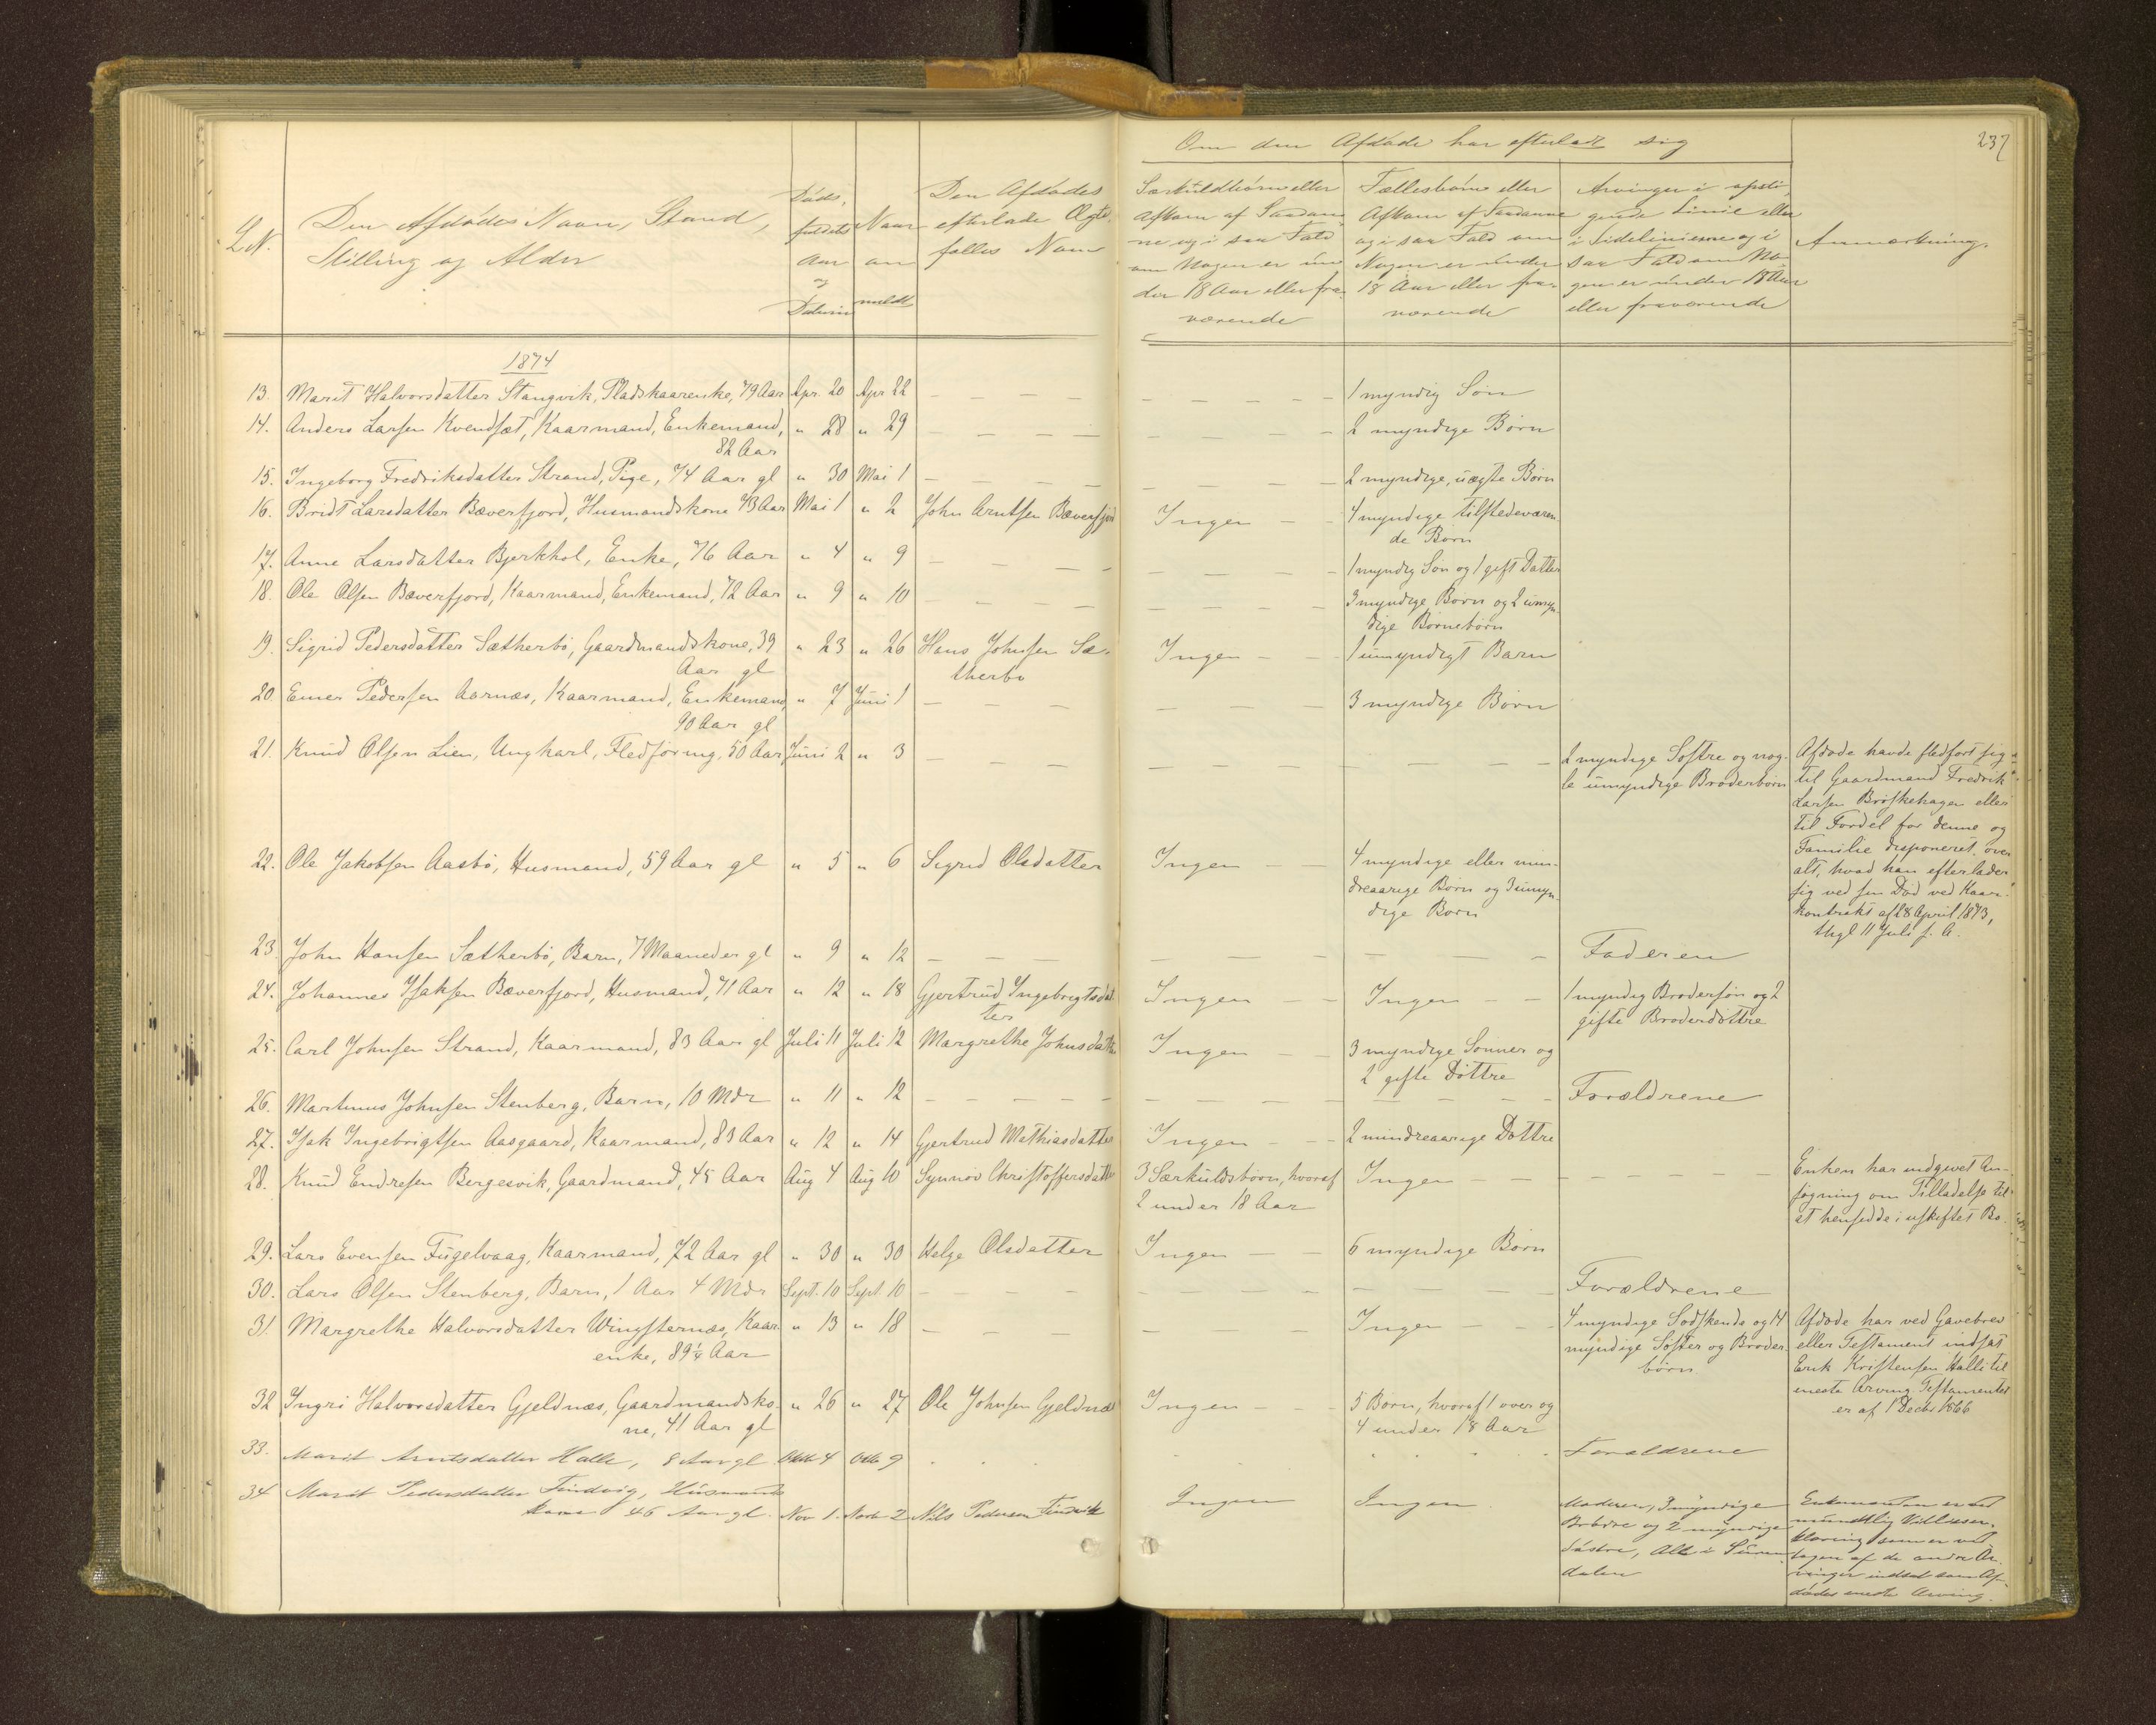 237
Om den Afdøde har efterladt sig
L.N.
Den Afdødes Navn, Stand,
Stilling og Alder
Døds-
faldets
Aar
og
Datum
Naar
an
meldt
Den Afdødes
efterladte Ægte-
fælles Navn
Særkuldbørn eller
Afkom af Saadan-
ne og i saa Fald
om Nogen er un-
der 18 Aar eller fra-
værende
Fællesbørn eller
Afkom af Saadanne
og i saa Fald om
Nogen er under
18 Aar eller fra-
værende
Arvinger i opsti-
gende Linie eller
i Sidelinierne og i
saa Fald om No-
gen er under 18 Aar
eller fraværende
Anmærkning.
1874
13. Marit Halvorsdatter Stangvik, Pladskaarenke, 79 Aar Apr. 20 Apr 22 1 myndig Søn
14. Anders Larsen Kvendset, Kaarmand, Enkemand, " 28 " 29 2 myndige Børn
82 Aar
15. Ingeborg Fredriksdatter Strand, Pige, 74 Aar gl " 30 Mai 1 2 myndige, uægte Børn
16. Bridt Larsdatter Bæverfjord, Husmandskone 73 Aar Mai 1 " 2 John Arntsen Bæverfjord Ingen 4 myndige tilstedeværen
de Børn
17. Anne Larsdatter Bjerkhol, Enke, 76 Aar " 4 " 9 1 myndig Søn og 1 gift Datter
18. Ole Olsen Bæverfjord, Kaarmand, Enkemand, 72 Aar " 9 " 10 3 myndige Børn og 2 umyn-
dige Børnebørn
19. Sigrid Pedersdatter Sætherbø, Gaardmandskone, 39 " 23 " 26 Hans Johnsen Sæ- Ingen 1 umyndigt Barn
Aar gl therbø
20. Einer Pedersen Aarnæs, Kaarmand, Enkemand, " 7 Juni 1 3 myndige Børn
90 Aar gl
21. Knud Olsen Lien, Ungkarl, Fledføring, 50 Aar Juni 2 " 3 2 myndige Søstre og nog-
le umyndige Broderbørn
Afdøde havde fledført sig
til Gaardmand Fredrik
Larsen Brøskehagen eller
til Fordel for denne og
Familie disponeret over
alt, hvad han efterlader
sig ved sin Død ved Kaar-
kontrakt af 28 April 1873,
thgl 11 Juli s. A.
22. Ole Jakobsen Aasbø, Husmand, 59 Aar gl " 5 " 6 Sigrid Olsdatter Ingen 4 myndige eller min-
dreaarige Børn og 3 umyn-
dige Børn
23. John Hansen Sætherbø, Barn, 7 Maaneder gl " 9 " 12 Faderen
24. Johannes Isaksen Bæverfjord, Husmand, 71 Aar " 12 " 18 Gjertrud Ingebrigtsdat- Ingen Ingen 1 myndig Brodersøn og 2
ter gifte Broderdøttre
25. Carl Johnsen Strand, Kaarmand, 83 Aar gl Juli 11 Juli 12 Margrethe Johnsdatter Ingen 3 myndige Sønner og
2 gifte Døttre
26. Martinus Johnsen Stenberg, Barn, 10 Mdr " 11 " 12 Forældrene
27. Isak Ingebrigtsen Aasgaard, Kaarmand, 83 Aar " 12 " 14 Gjertrud Mathiasdatter Ingen 2 mindreaarige Døttre
28. Knud Endresen Bergesvik, Gaardmand, 45 Aar Aug 4 Aug 10 Synnøv Christoffersdatter 3 Særkuldsbørn, hvoraf Ingen
2 under 18 Aar
Enken har indgivet An-
søgning om Tilladelse til
at hensidde i uskiftet Bo.
29. Lars Evensen Fugelvaag, Kaarmand, 72 Aar gl " 30 " 30 Helge Olsdatter Ingen 6 myndige Børn
30. Lars Olsen Stenberg, Barn, 1 Aar 4 Mdr Sept. 10 Sept. 10 Forældrene
31. Margrethe Halvorsdatter Wingsternæs, Kaar- " 13 " 18 Ingen 4 myndige Sødskende og 14
enke, 89¼ Aar myndige Søster og Broder-
børn.
Afdøde har ved Gavebrev
eller Testament indsat
Erik Kristensen Halle til
eneste Arving. Testamentet
er af 1 Decbr 1866
32 Ingri Halvorsdatter Gjeldnæs, Gaardmandsko- " 26 " 27 Ole Johnsen Gjeldnæs Ingen 5 Børn, hvoraf 1 over og
ne, 41 Aar gl 4 under 18 Aar
33. Marit Arntsdatter Halle, 8 Aar gl Oktb 4 Oktb 9 Forældrene
34 Marit Pedersdatter Tindvig, Husmands
kone 46 Aar gl. Nov 1. Novb 2 Nils Pedersen Tindvik Ingen Ingen
Moderen, 3 myndige
Brødre og 2 myndige
Søstre, Alle i Suren-
dalen
Enkemanden er ved
mundtlig Villieser-
klæring som er ved
tagen af de andre Ar-
vinger indsat som Af-
dødes eneste Arving.